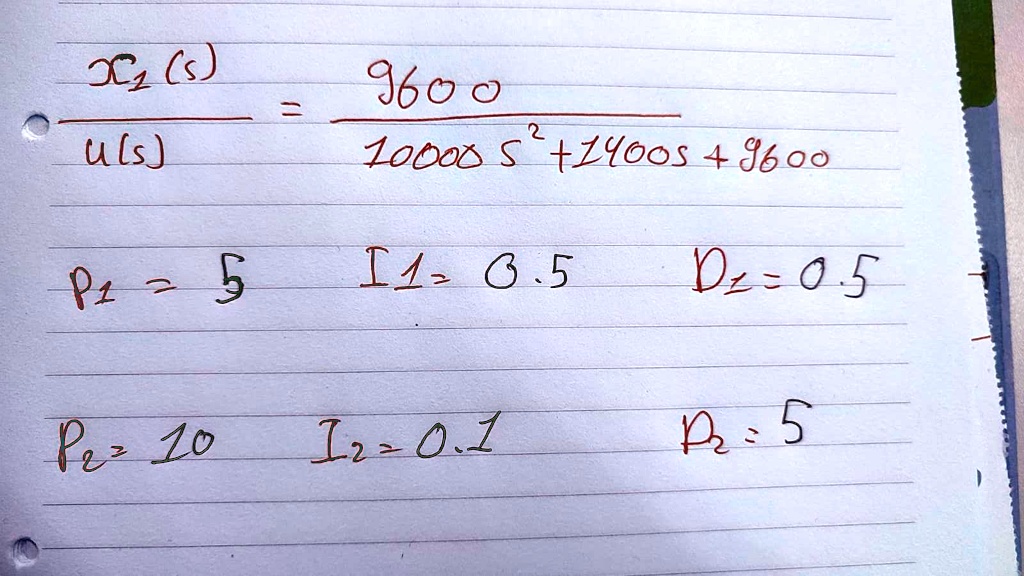 x₁(s) / u(s) = 9600 / 10000 s² + 1400s + 9600
P1 = 5 I1 = 0.5 D1 = 0.5
P2 = 10 I2 = 0.1 D2 = 5